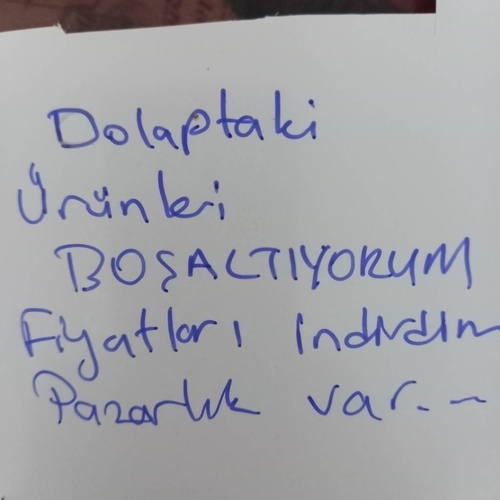 Dolaptaki
Ürünleri
BOŞALTIYORUM
Fiyatları indirdim
Pazarlık var. ~